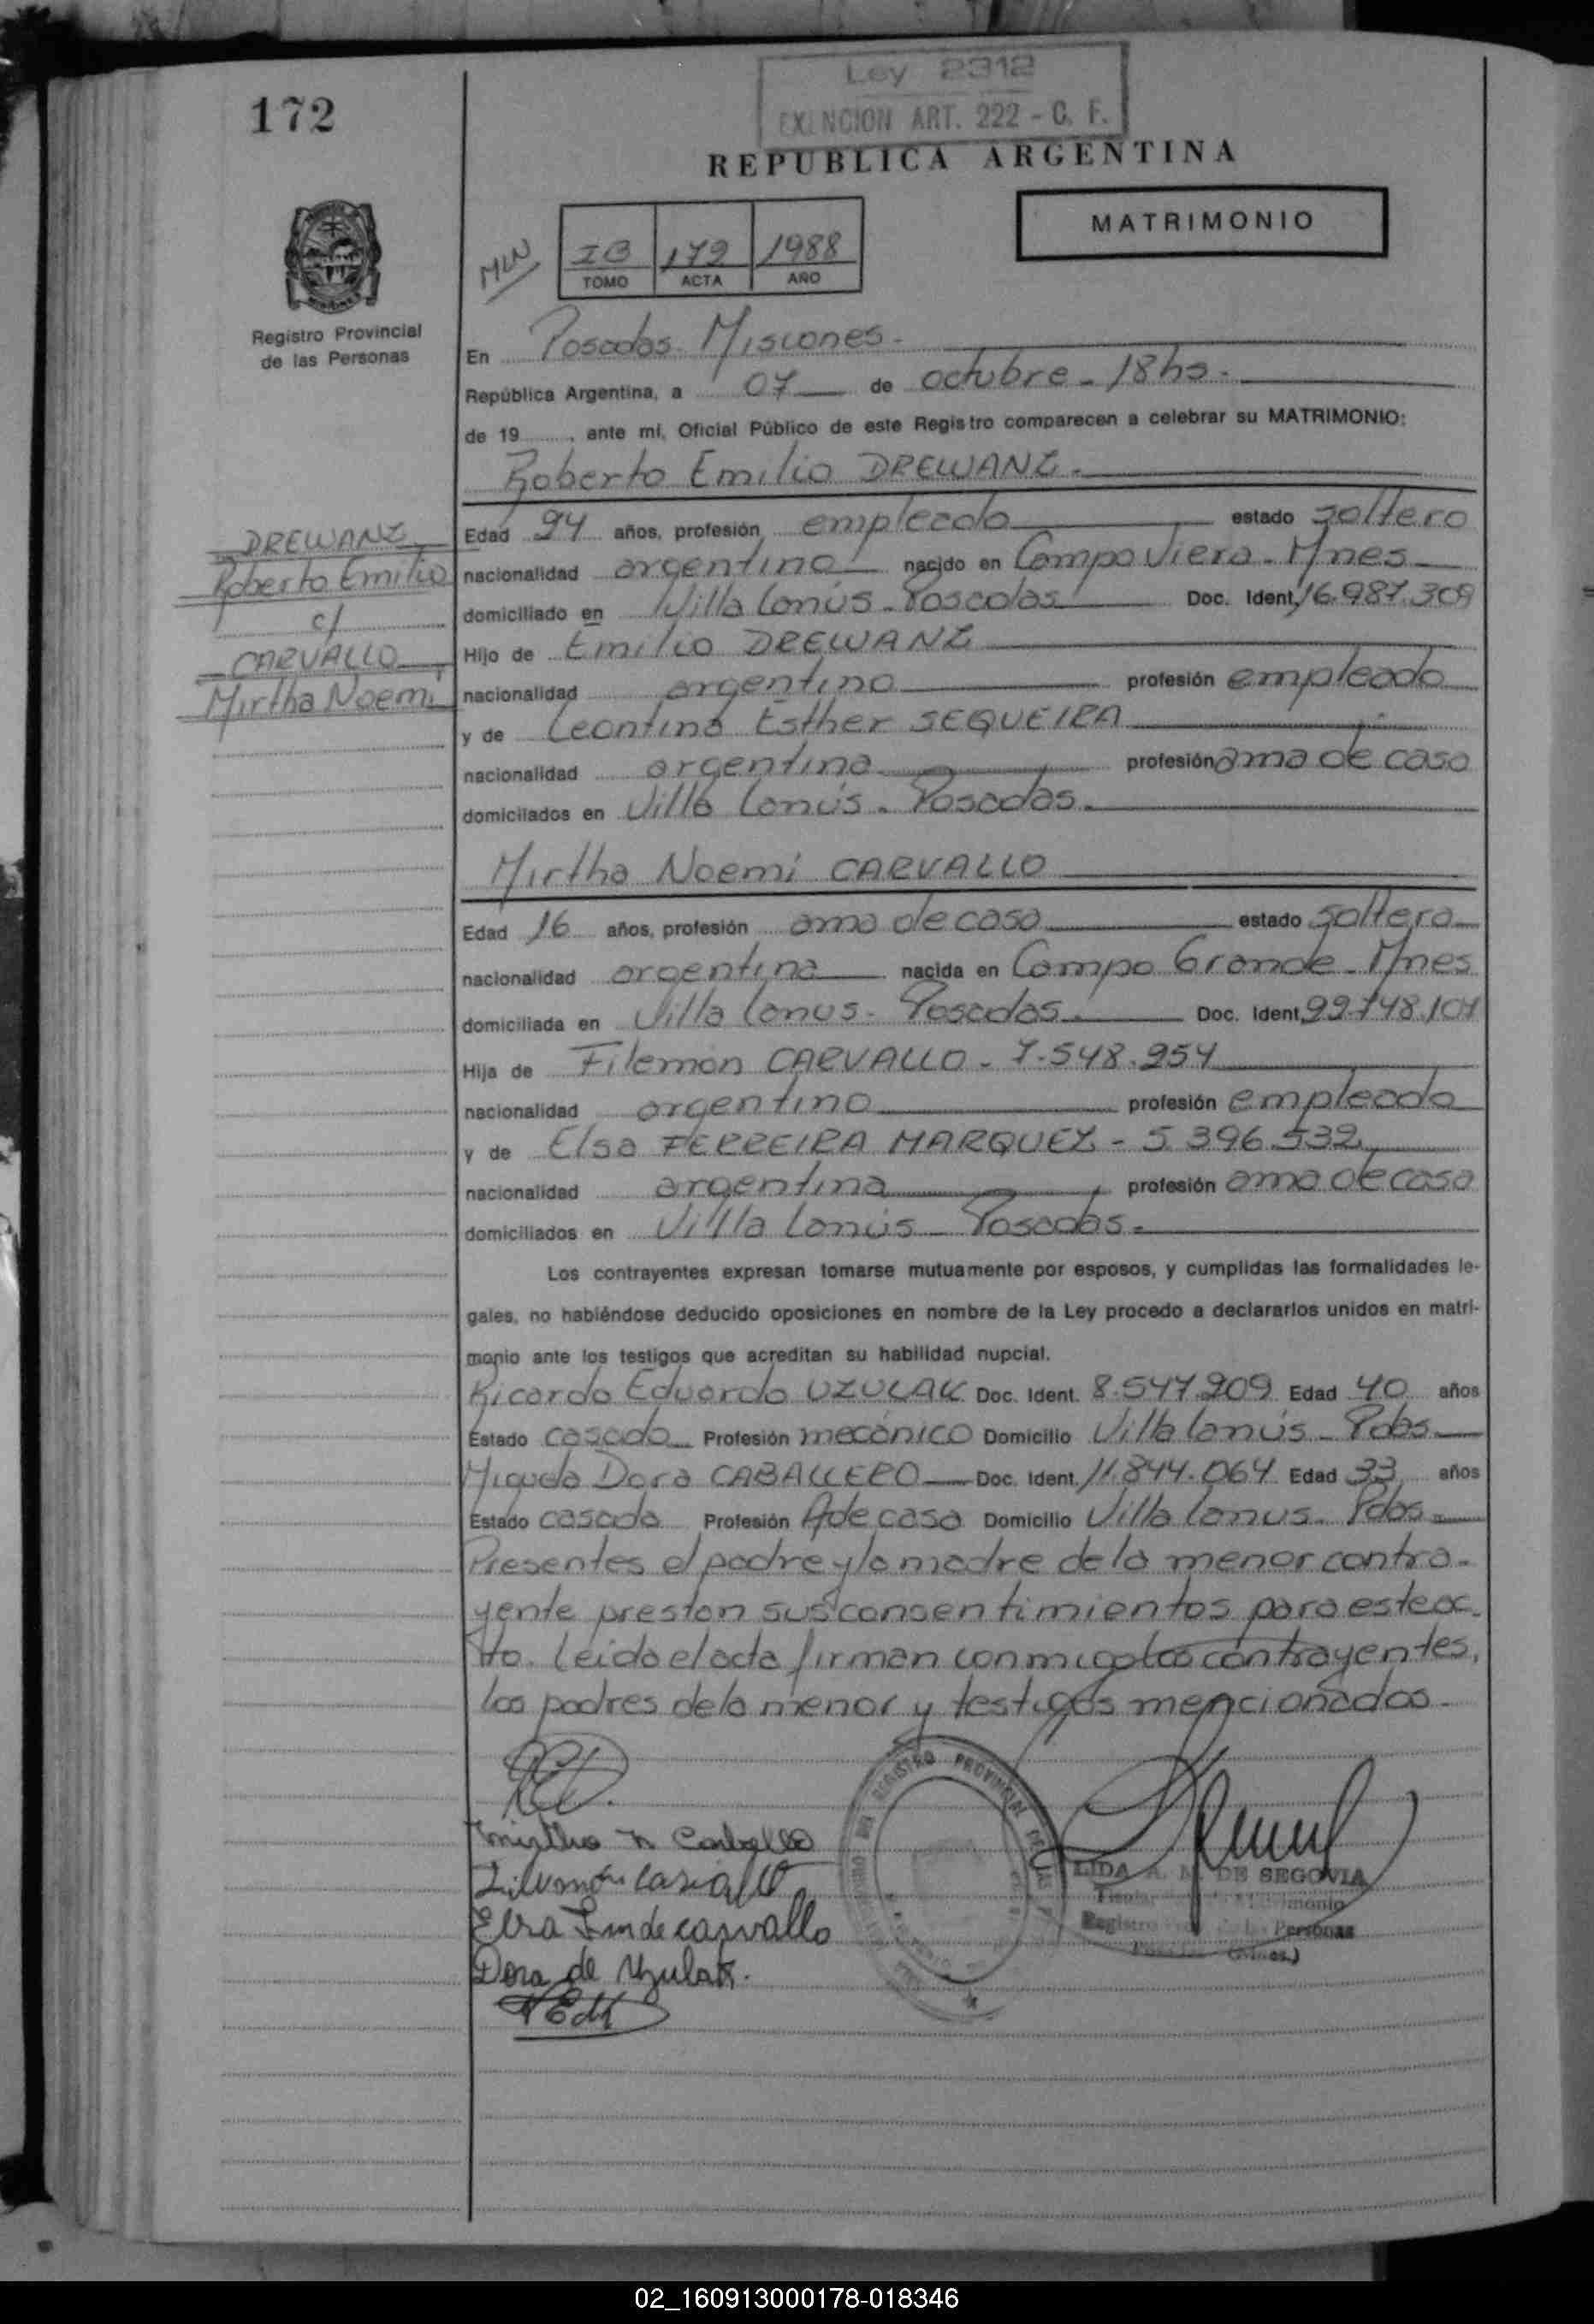 172
Ley 2312
EXENCION ART. 222 - C. F.
REPUBLICA ARGENTINA
MATRIMONIO
MLN
IB 172 1988
TOMO ACTA AÑO
Registro Provincial
de las Personas
En Posadas Misiones.
República Argentina, a 07 de octubre - 18hs.
de 19........, ante mí, Oficial Público de este Registro comparecen a celebrar su MATRIMONIO:
Roberto Emilio DREWANZ.
DREWANZ
Roberto Emilio
c/
CARVALLO
Mirtha Noemí
Edad 24 años, profesión empleado estado soltero
nacionalidad argentino nacido en Campo Viera - Mnes
domiciliado en Villa Lanús - Posadas Doc. Ident. 16.987.309
Hijo de Emilio DREWANZ
nacionalidad argentino profesión empleado
y de Leontina Esther SEQUEIRA
nacionalidad argentina profesión ama de casa
domiciliados en Villa Lanús - Posadas.
Mirtha Noemí CARVALLO
Edad 16 años, profesión ama de casa estado soltera
nacionalidad argentina nacida en Campo Grande - Mnes
domiciliada en Villa Lanus - Posadas. Doc. Ident. 22.748.107
Hija de Filemón CARVALLO - 7.548.254
nacionalidad argentino profesión empleado
y de Elsa FERREIRA MARQUEZ - 5.396.532
nacionalidad argentina profesión ama de casa
domiciliados en Villa Lanús - Posadas.
Los contrayentes expresan tomarse mutuamente por esposos, y cumplidas las formalidades le-
gales, no habiéndose deducido oposiciones en nombre de la Ley procedo a declararlos unidos en matri-
monio ante los testigos que acreditan su habilidad nupcial.
Ricardo Eduardo UZULAK Doc. Ident. 8.547.909 Edad 40 años
Estado casado Profesión mecánico Domicilio Villa Lanús - Pdas
Miguela Dora CABALLERO Doc. Ident. 11.844.064 Edad 33 años
Estado casada Profesión A de casa Domicilio Villa Lanus - Pdas
Presentes el padre y la madre de la menor contra-
yente prestan sus consentimientos para este ac-
to. Leida el acta firman conmigo los contrayentes,
los padres de la menor y testigos mencionados.
mirtha n Carballo
Filemón Carvallo
Elsa F de carvallo
Dora de Uzulak.
REGISTRO PROVINCIAL DE LAS
LIDA A. M. DE SEGOVIA
Titular Matrimonio
Registro de las Personas
Posadas (Mnes.)
02_160913000178-018346